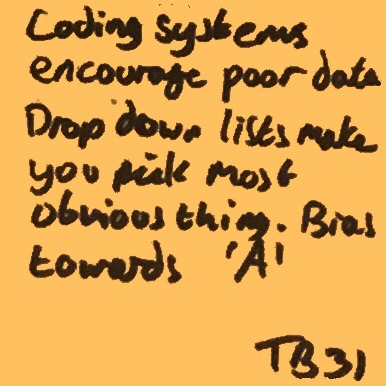 Coding systems
encourage poor data
Drop down lists make
you pick most
obvious thing. Bias
towards 'A'
TB31